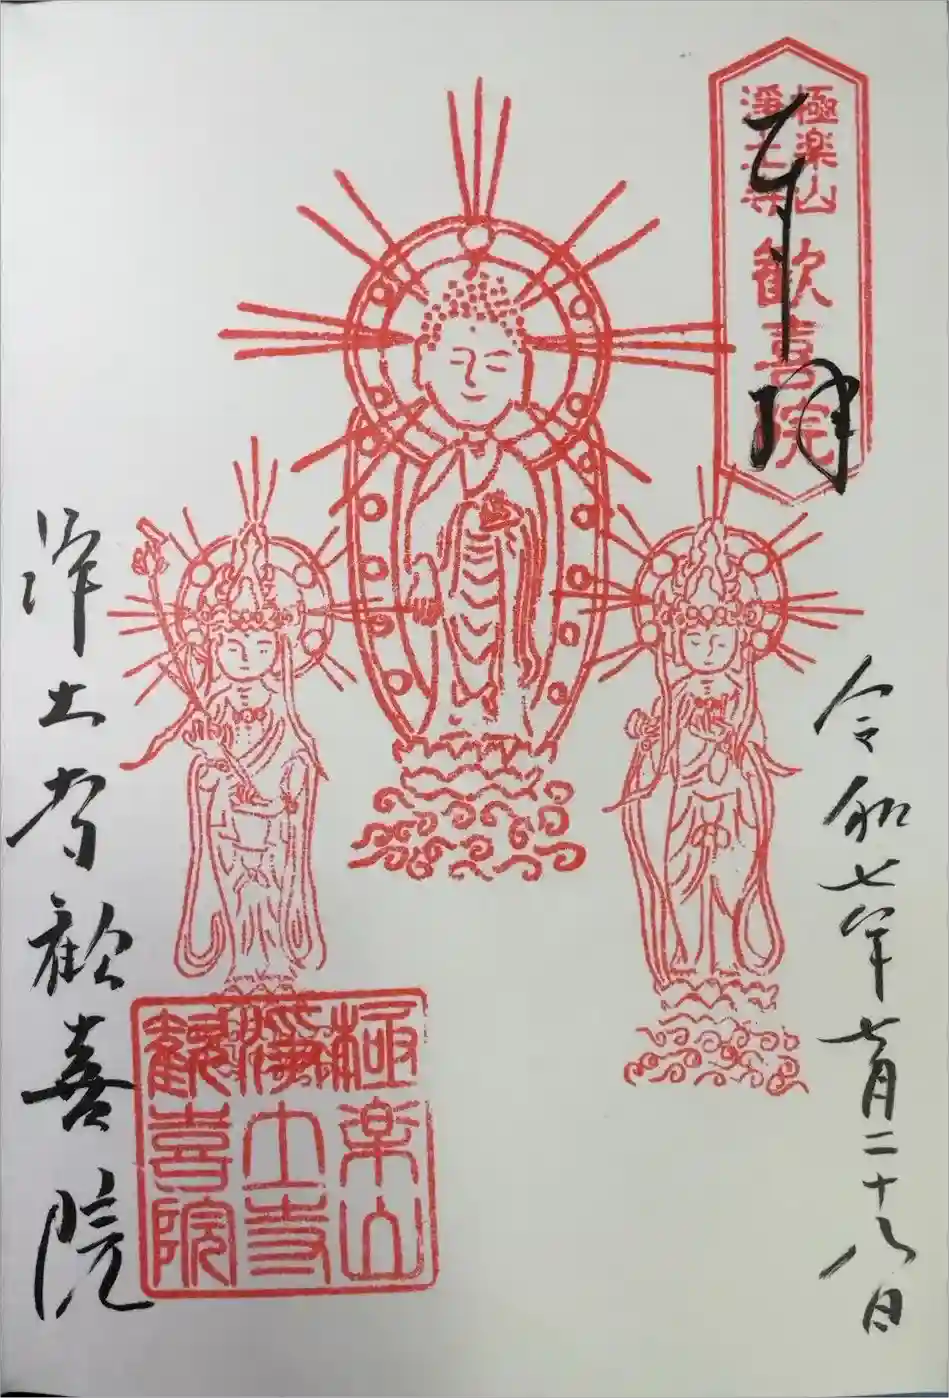 極楽山
淨土寺
歓喜院
奉拝
令和七年七月二十八日
極楽山
淨土寺
歓喜院
浄土寺歓喜院